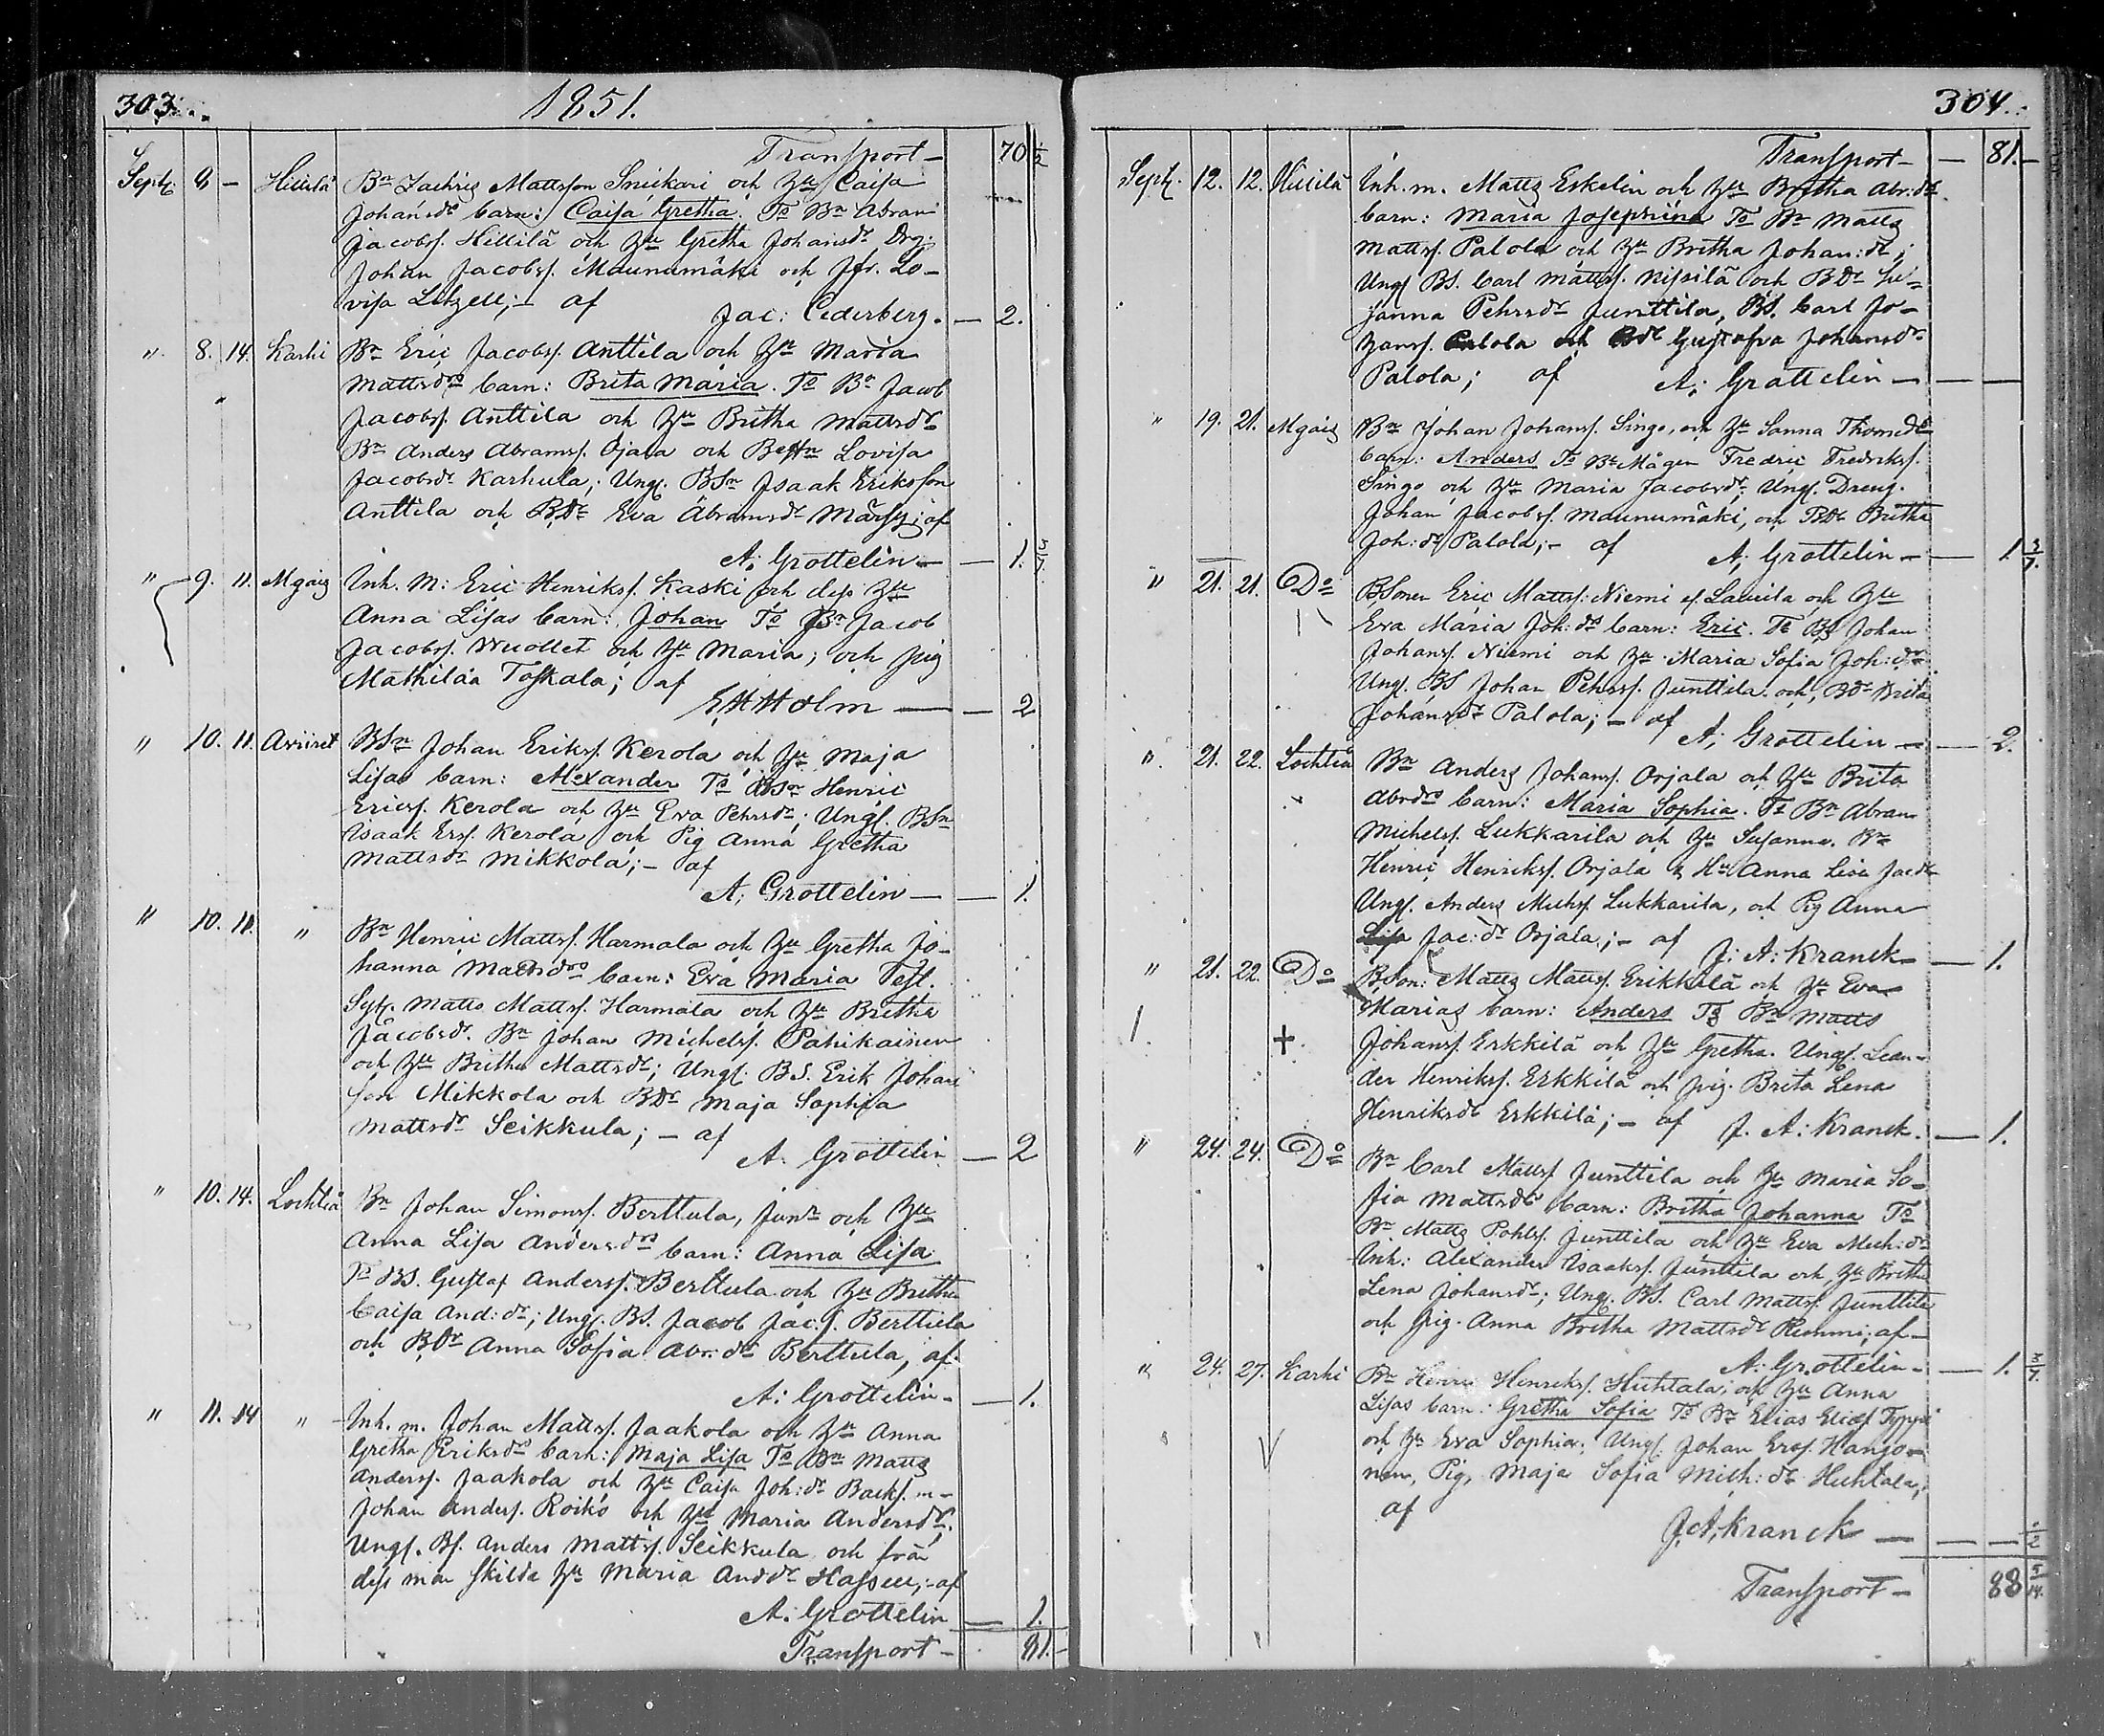 303.
1851.
Transport — 70 1/2
Septr 8 — Hillilä Bn Zachris Mattsson Snickari och Hu Caisa
Johansdrs barn: Caisa Gretha. Ts Bn Abram
Jacobss. Hillilä och Hu Gretha Johansdr Drg.
Johan Jacobss. Maunumäki och Jfr. Lo-
visa Litzell; — af
Jac: Cederberg. — 2.
" 8. 14. Karhi Bn Eric Jacobss. Anttila och Hu Maria
Mattsdrs barn: Brita Maria. Ts Bn Jacob
Jacobss. Anttila och Hu Britha Mattsdr
Bn Anders Abramss. Ojala och Lovisa
Jacobsdr Karhula; Ungs. BSn Isaak Eriksson
Anttila och BDr Eva Abramsdr af
A: Grottelin — — 1. 3/7
" 9. 11. Inh. M: Eric Henrikss. Kaski och dess Hu
Anna Lisas barn: Johan Ts Bn Jacob
Jacobss. Wuollet och Hu Maria; och pig
Mathilda Toskala; af
Holm — — 2
" 10. 11. BSn Johan Erikss. Kerola och Hu Maja
Lisas barn: Alexander Ts BSn Henric
Ericss. Kerola och Hu Eva Pehrsdr; Ungs. BSn
Isaak Ers. Kerola och Pig Anna Gretha
Mattsdr Mikkola; — af
A; Grottelin — — 1.
" 10. 11. " Bn Henric Mattss. Harmala och Hu Gretha Jo-
hanna Mattsdrs barn: Eva Maria Test.
Sytn. Matts Mattss. Harmala och Hu Britha
Jacobsdr. Bn Johan Michelss. Pahikainen
och Hu Britha Mattsdr; Ungs. B.S. Erik Johans
son Mikkola och BDr Maja Sophia
Mattsdr Seikkula; — af
A. Grottelin — 2
" 10. 14. Lochteå Bn Johan Simonss. Berttula, junr och Hu
Anna Lisa Andersdrs barn: Anna Lisa
Ts BS. Gustaf Anderss. Berttula och Hu Britha
Caisa And: dr; Ungs. BS. Jacob Jac. s. Berttula
och BDr Anna Sofia Abr. dr Berttula, af
A: Grottelin — — 1.
" 11. 14 " Inh. m. Johan Mattss. Jaakola och Hu Anna
Gretha Eriksdrs barn: Maja Lisa Ts Bn Matts
Anderss. Jaakola och Hu Caisa Joh: dr Backs. m —
Johan Anders. Roiko och Hu Maria Andersdr.
Ungs. Bs. Anders Mattss. Seikkula och från
dess man skilda Hu Maria Anddr af
A. Grottelin — 1.
Transport — 81. —
304.
Transport — — 81. —
Septr. 12. 12. Hillilä Inh. m. Matts Eskelin och Hu Britha Abr: drs
barn: Maria Josephina Ts Bn Matts
Mattss. Palola och Hu Britha Johan: dr;
Ungs BS. Carl Mattss. Nissilä och BDr Su-
sanna Pehrsdr Junttila, BS. Carl Jo-
hanss. Palola och Bdr Gustafva Johansdr
Palola; af A; Grottelin — — —
" 19. 21. Bn Johan Johanss. Singo, och Hu Sanna Thomdrs
barn: Anders Ts Bn Mågen Fredric Fredrikss.
Singo och Hu Maria Jacobsdr. Ungs. Dreng.
Johan Jacobss. Maunumäki, och BDr Britha
Joh: dr Palola; — af A; Grottelin — — 1 3/7.
" 21. 21. Do BSonen Eric Mattss. Niemi och Hu
Eva Maria Joh: drs barn: Eric. Ts BS Johan
Johanss. Niemi och Hu Maria Sofia Joh: dr
Ungs. BS Johan Pehrss. Junttila och, Bdr Brita
Johansdr Palola; — af
A; Grottelin — — 2.
". 21. 22. Lochteå Bn Anders Johanss. Orjala och Hu Brita
Abrdrs barn: Maria Sophia. Ts Bn Abram
Michelss. Lukkarila och Hu Susanna. Bn
Henric Henrikss. Orjala & Hu Anna Lisa Jacdr
Ungs. Anders Michss. Lukkarila, och Pig Anna
Lisa Jac: dr Orjala; — af J: A: Kranck — — 1.
" 21. 22. Do BSon: Matts Mattss. Erkkilä och Hu Eva
Marias barn: Anders Ts Bn Matts
Johanss. Erkkilä och Hu Gretha. Ungs. Lean-
der Henrikss. Erkkilä och pig. Brita Lena
Henriksdr Erkkilä; — af J. A: Kranck. — 1.
" 24. 24. Do Bn Carl Mattss Junttila och Hu Maria So-
fia Mattsdrs barn: Britha Johanna Ts
Bn Matts Pohlss. Junttila och Hu Eva Mich: dr
Inh: Alexander Isaakss. Junttila och Hu Britha
Lena Johansdr; Ungs. BS. Carl Mattss. Junttila
och pig. Anna Britha Mattsdr af —
A: Grottelin — — 1. 3/7.
" 24. 27. Karhi Bn Henric Henrikss. Huhtala, och Hu Anna
Lisas barn: Gretha Sofia Ts Bn Elias Elias. Typpö
och Hu Eva Sophia; Ungs. Johan Erss. Hanjo-
nen, Pig, Maja Sofia Mich: dr Huhtala;
af
J. A; Kranck — — — 1/2
Transport — 88 5/14.